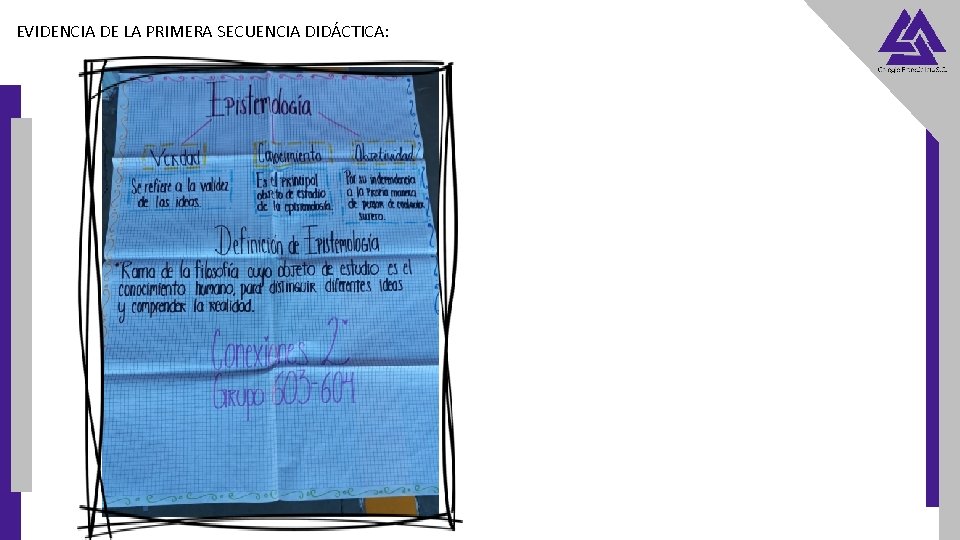 EVIDENCIA DE LA PRIMERA SECUENCIA DIDÁCTICA:
Epistemología
Verdad
Conocimiento
Objetividad
Se refiere a la validez
de las ideas.
Es el principal
objeto de estudio
de la epistemología.
Por su independencia
a la propia manera
de pensar de cualquier
sujeto.
Definición de Epistemología
*Rama de la filosofía cuyo objeto de estudio es el
conocimiento humano, para distinguir diferentes ideas
y comprender la realidad.
Conexiones 2°
Grupo 603-604